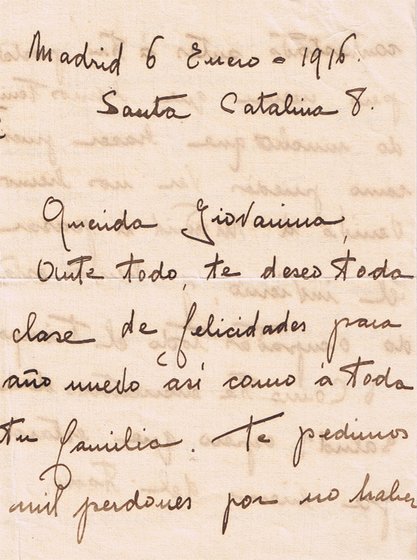 Madrid 6 Enero - 1916.
Santa Catalina 8.
Querida Giovanina,
Ante todo, te deseo toda
clase de felicidades para
año nuevo así como á toda
tu familia. Te pedimos
mil perdones por no haber